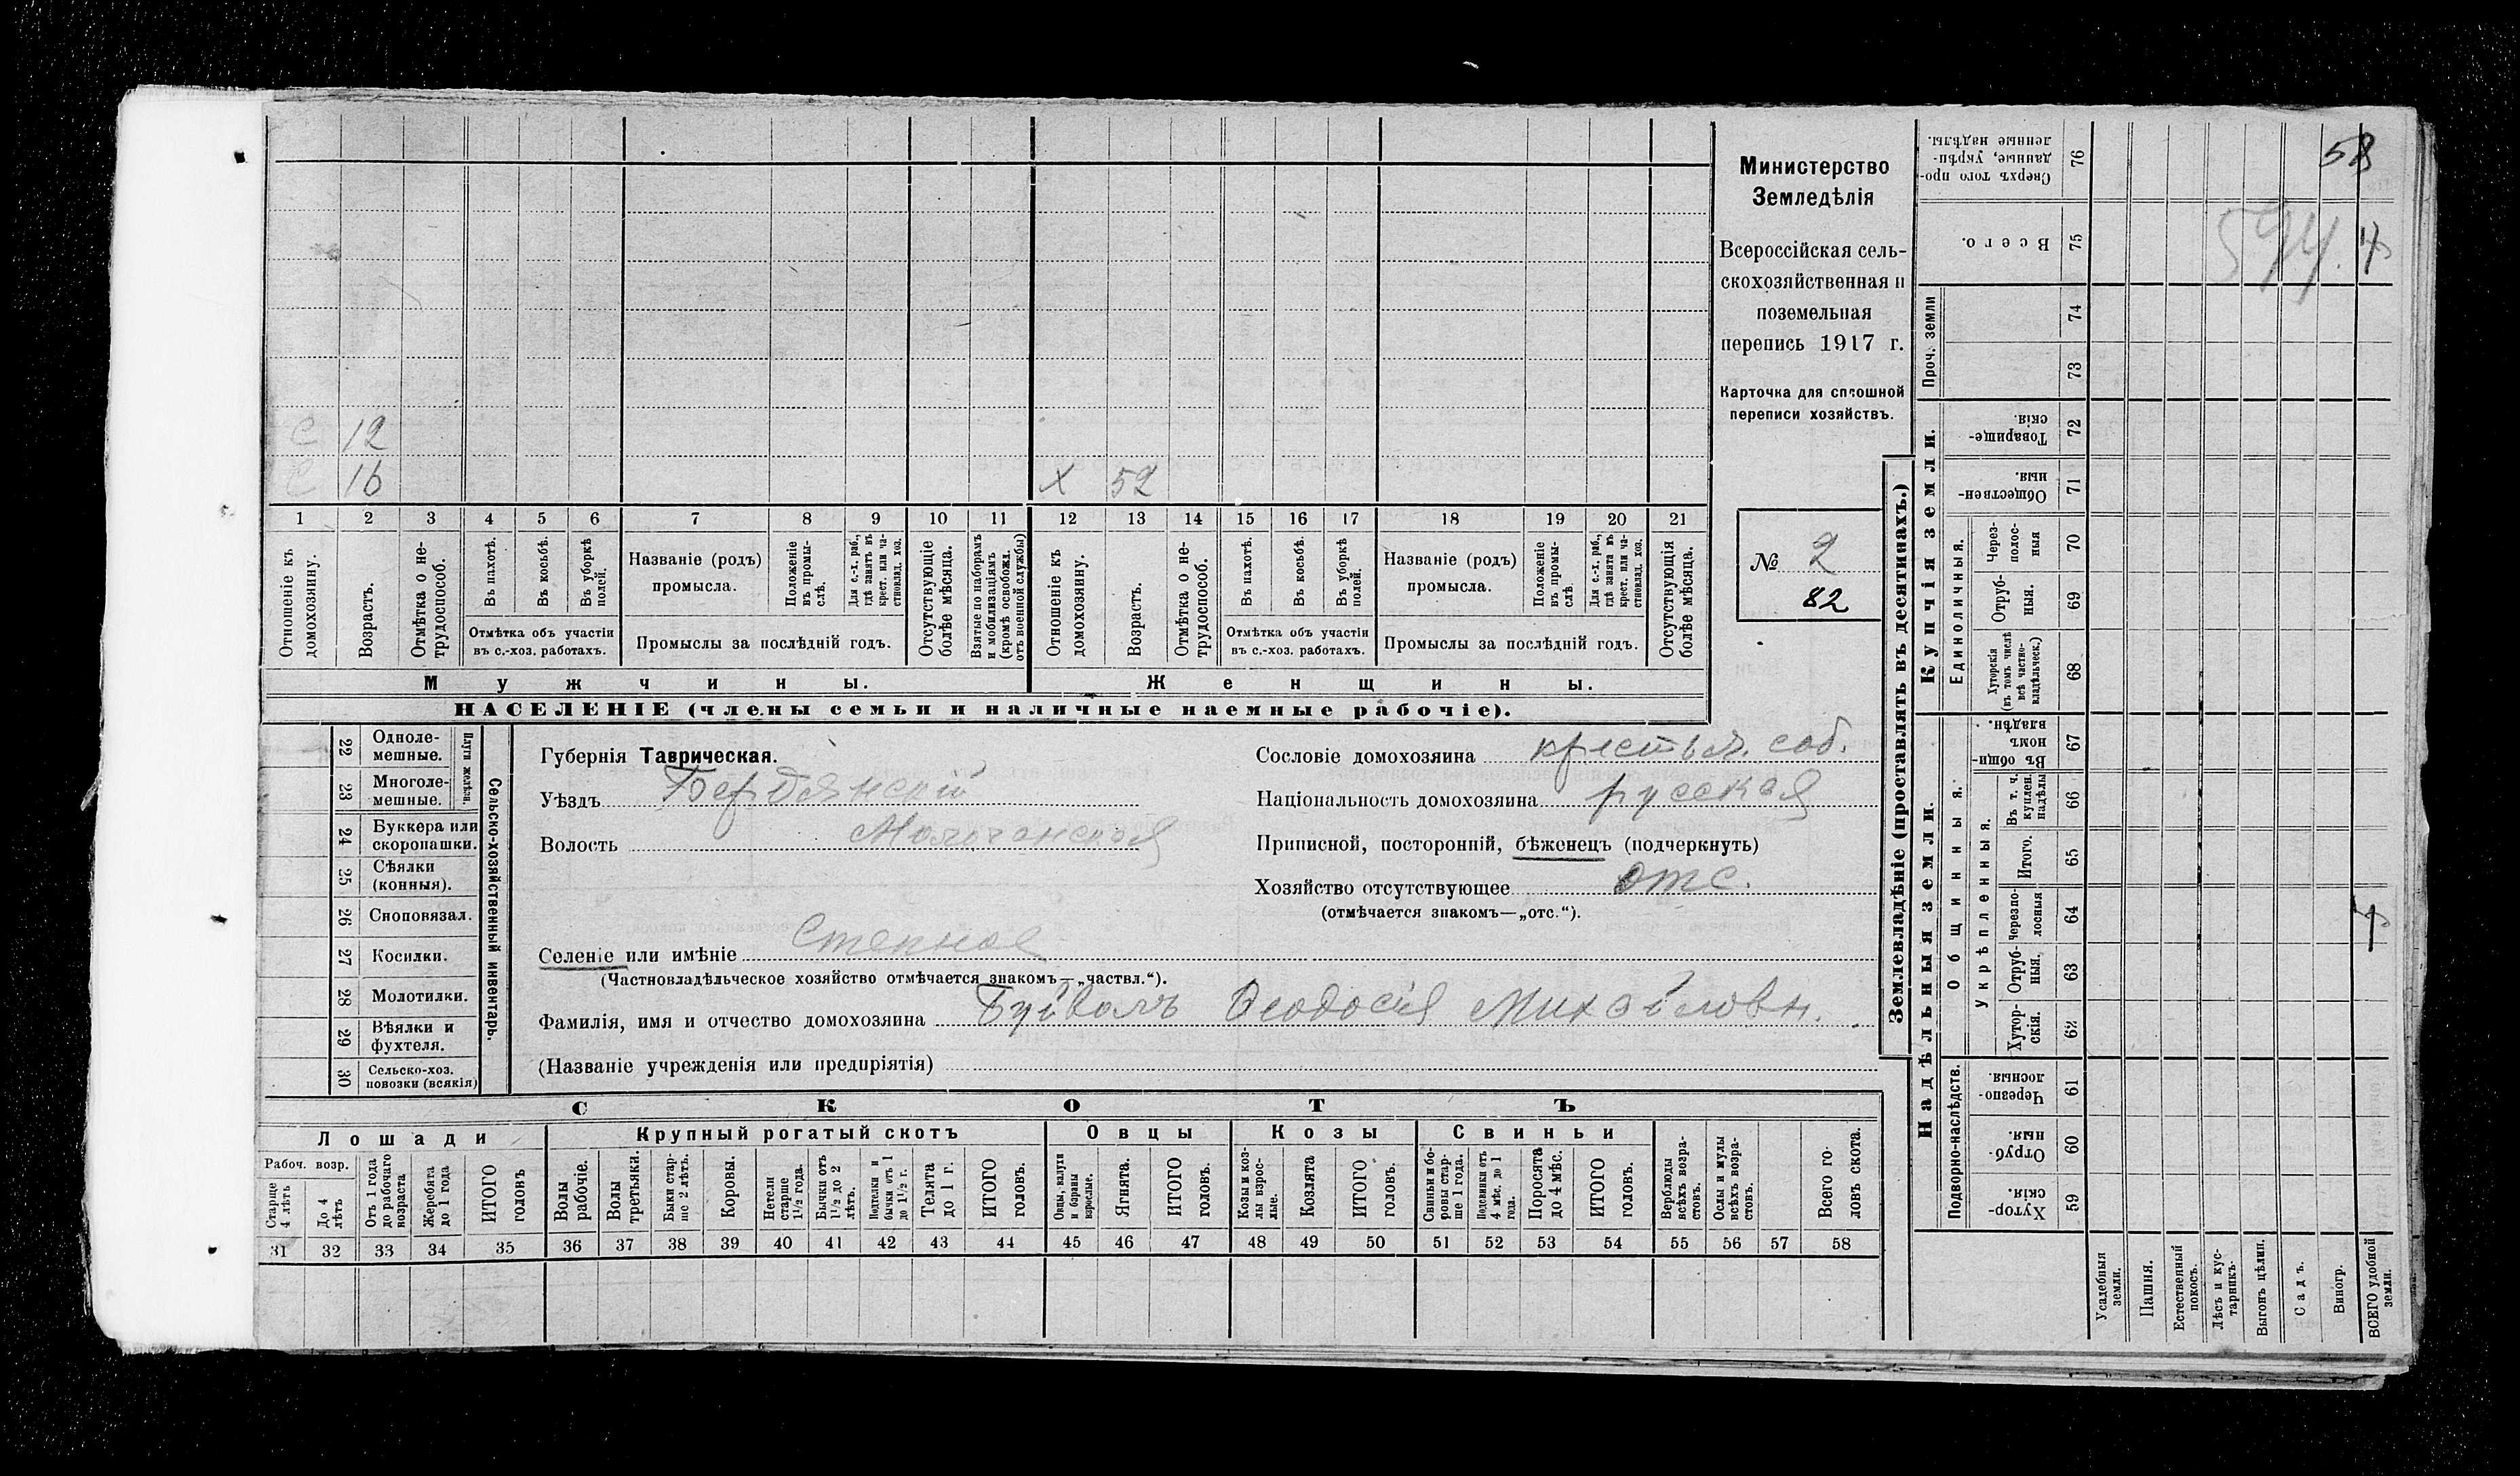 58
594.
4
С 12
С 16
Х 52
1 2 3 4 5 6 7 8 9 10 11 12 13 14 15 16 17 18 19 20 21
Отношеніе къ домохозяину.
Возрастъ.
Отмѣтка о не-трудоспособ.
Въ пахотѣ.
Въ косьбѣ.
Въ уборкѣ полей.
Отмѣтка объ участіи
въ с.-хоз. работахъ.
Названіе (родъ)
промысла.
Положеніе въ промы-слѣ.
Для с.-х. раб., гдѣ занятъ въ крест. или ча-стновлад. хоз.
Промыслы за послѣдній годъ.
Отсутствующіе болѣе мѣсяца.
Взятые по наборамъ и мобилизаціямъ (кромѣ освобожд. отъ военной службы)
Отношеніе къ домохозяину.
Возрастъ.
Отмѣтка о не-трудоспособ.
Въ пахотѣ.
Въ косьбѣ.
Въ уборкѣ полей.
Отмѣтка объ участіи
въ с.-хоз. работахъ.
Названіе (родъ)
промысла.
Положеніе въ промы-слѣ.
Для с.-х. раб., гдѣ занята въ крест. или ча-стновлад. хоз.
Промыслы за послѣдній годъ.
Отсутствующія болѣе мѣсяца.
Мужчины.
Женщины.
НАСЕЛЕНІЕ (члены семьи и наличные наемные рабочіе).
Министерство
Земледѣлія
Всероссійская сель-
скохозяйственная и
поземельная
перепись 1917 г.
Карточка для сплошной
переписи хозяйствъ.
№ 2
82
22 Одноле-мешные.
23 Многоле-мешные.
Плуги желѣзн.
24 Буккера или скоропашки.
25 Сѣялки (конныя).
26 Сноповязал.
27 Косилки.
28 Молотилки.
29 Вѣялки и фухтеля.
30 Сельско-хоз. повозки (всякія)
Сельско-хозяйственный инвентарь.
Губернія Таврическая.
Уѣздъ Бердянскій
Волость Молочанская
Селеніе или имѣніе Степное
(Частновладѣльческое хозяйство отмѣчается знакомъ—„частвл.“).
Сословіе домохозяина крестьян. соб.
Національность домохозяина русская
Приписной, посторонній, бѣженецъ (подчеркнуть)
Хозяйство отсутствующее отс.
(отмѣчается знакомъ—„отс.“).
Фамилія, имя и отчество домохозяина Буйволъ Феодосія Михайловн.
(Названіе учрежденія или предпріятія)
СКОТЪ
Лошади
Крупный рогатый скотъ
Овцы
Козы
Свиньи
Рабоч. возр.
Старше 4 лѣтъ
До 4 лѣтъ
Отъ 1 года до рабочаго возраста
Жеребята до 1 года
ИТОГО головъ
Волы рабочіе.
Волы третьяки.
Быки стар-ше 2 лѣтъ.
Коровы.
Нетели старше 1½ года.
Бычки отъ 1½ до 2 лѣтъ.
Подтелки и бычки отъ 1 до 1½ г.
Телята до 1 г.
ИТОГО головъ.
Овцы, валухи и бараны взрослые.
Ягнята.
ИТОГО головъ.
Козы и коз-лы взрос-лые.
Козлята
ИТОГО головъ.
Свиньи и бо-ровы стар-ше 1 года.
Подсвинки отъ 4 мѣс. до 1 года.
Поросята до 4 мѣс.
ИТОГО головъ.
Верблюды всѣхъ возра-стовъ.
Ослы и мулы всѣхъ возра-стовъ.
Всего го-ловъ скота.
31 32 33 34 35 36 37 38 39 40 41 42 43 44 45 46 47 48 49 50 51 52 53 54 55 56 57 58
Землевладѣніе (проставлять въ десятинахъ.)
Купчія земли.
Проч. земли
Сверхъ того про-данные, укрѣп-ленные надѣлы. 76
Всего. 75
74
73
Товарище-скія 72
Обществен-ныя. 71
Единоличныя.
Через-полос-ныя 70
Отруб-ныя. 69
Хуторскія (въ томъ числѣ всѣ частно-владѣльческ.) 68
Надѣльныя земли.
Общинныя.
Въ общи-номъ владѣн. 67
Въ т. ч. куплен. надѣлы 66
Укрѣпленныя.
Итого. 65
Черезпо-лосныя 64
4
Отруб-ныя. 63
Хутор-скія. 62
Подворно-наслѣдств.
Черезпо-лосныя. 61
Отруб-ныя. 60
Хутор-скія. 59
Усадебныя земли.
Пашня.
Естественный покосъ.
Лѣсъ и кус-тарникъ.
Выгонъ цѣлин.
Садъ.
Виногр.
ВСЕГО удобной земли.